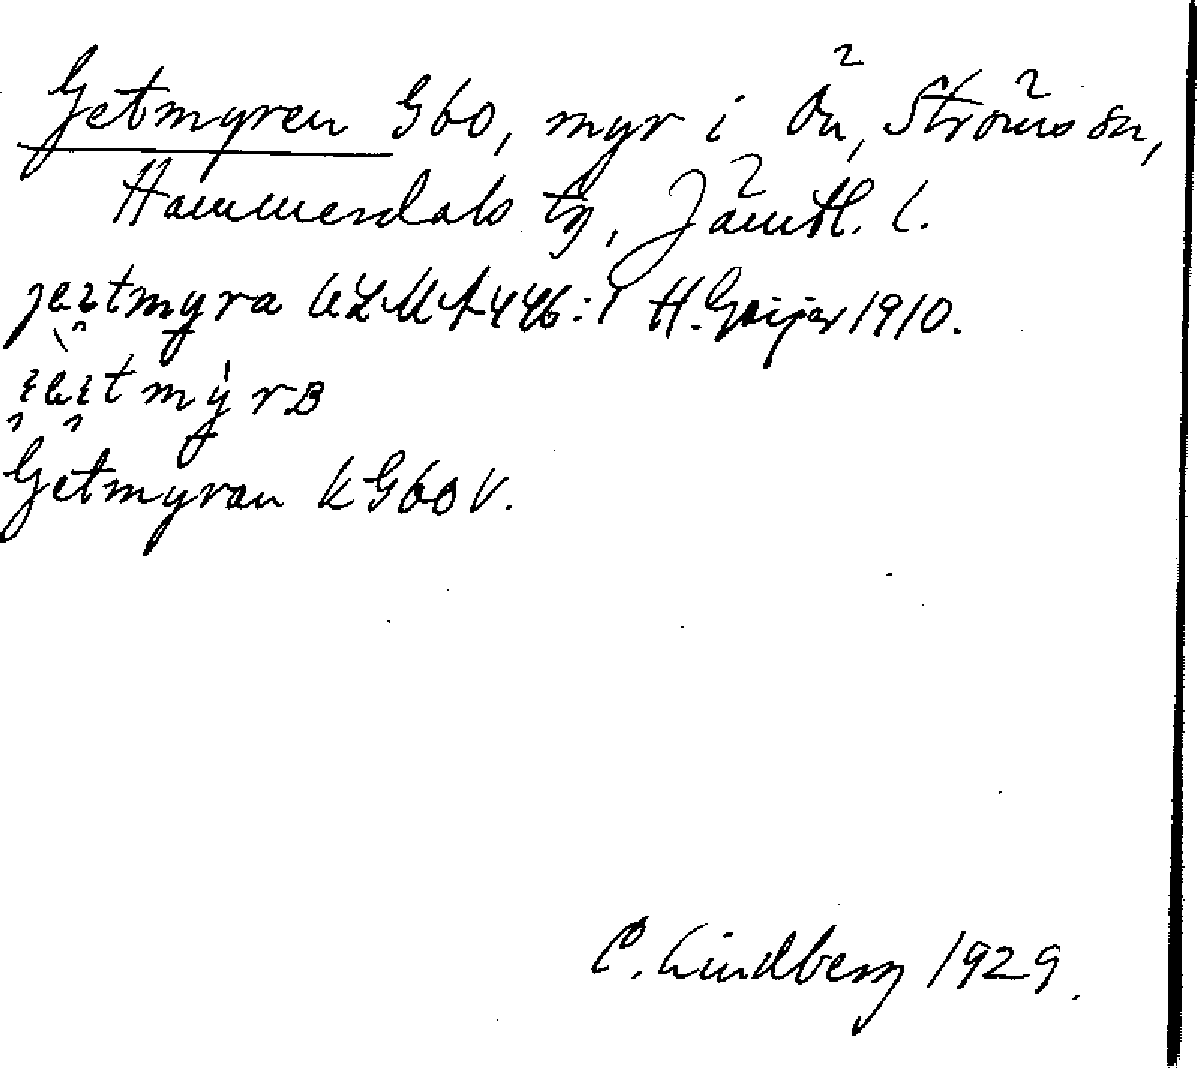 Getmyren Gbo, myr i Ön, Ströms sn,
Hammerdals tg, Jämtl. l.
jeztmyra ULMA 446:1 H. Geijer 1910.
Getmyran kGboV.
C. Lindberg 1929.